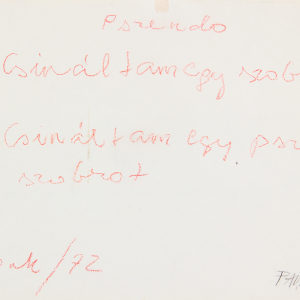 Pszendo
Csináltam egy szob
Csináltam egy psz
szobrot
/72